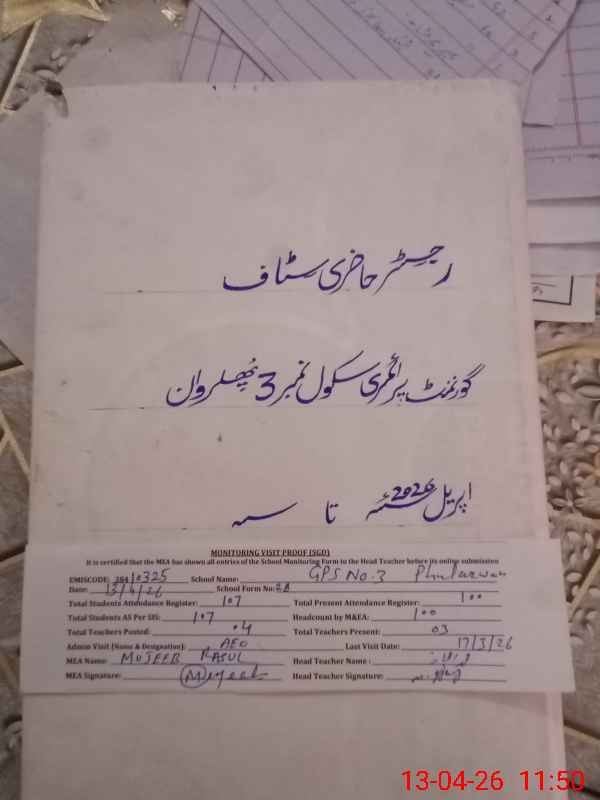 رجسٹر حاضری سٹاف
گورنمنٹ پرائمری سکول نمبر 3 پھلروان
اپریل 2026ء تا سہ
MONITORING VISIT PROOF (SGD)
It is certified that the MEA has shown all entries of the School Monitoring Form to the Head Teacher before its online submission
EMISCODE: 384/0325 School Name: GPS No. 3 Phularwan
Date: 13/4/26 School Form No:
Total Students Attendance Register: 107 Total Present Attendance Register: 100
Total Students AS Per SIS: 107 Headcount by M&EA: 100
Total Teachers Posted: 04 Total Teachers Present: 03
Admin Visit (Name & Designation): AEO Last Visit Date: 17/3/26
MEA Name: MUJEEB RASUL Head Teacher Name :
MEA Signature: Mujeeb Head Teacher Signature:
13-04-26 11:50